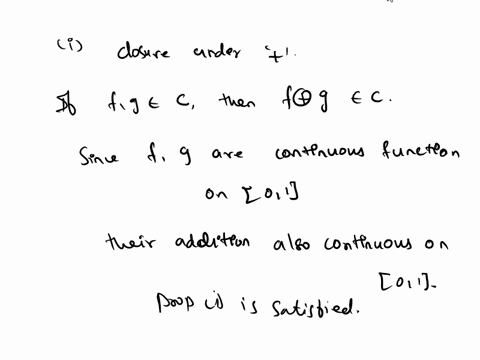 (i) closure under '+'.
If f, g ∈ C, then f⊕g ∈ C.
Since f, g are continuous function
on [0,1]
their addition also continuous on
[0,1].
Prop (i) is satisfied.